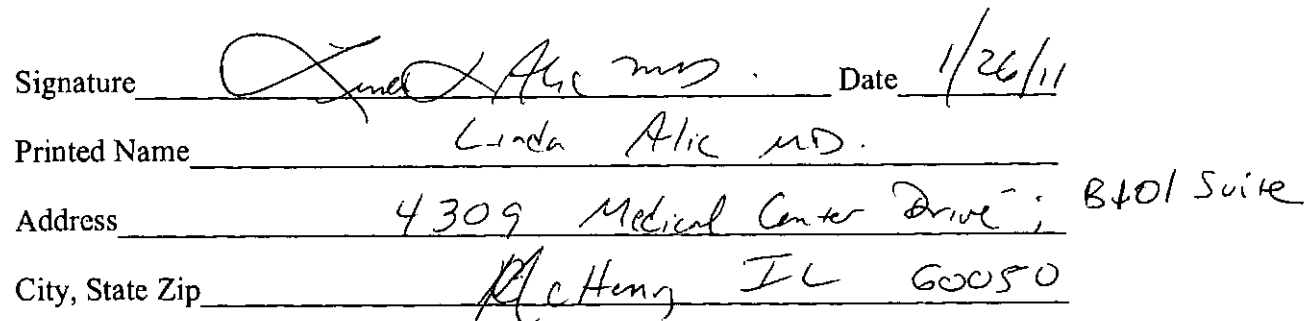 Signature Linda L Alic MD. Date 1/26/11
Printed Name Linda Alic MD.
Address 4309 Medical Center Drive; Suite
City, State Zip McHenry IL 60050